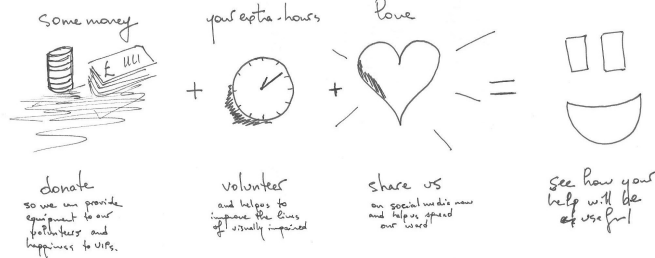 some money
your extra-hours
love
£
donate
so we can provide
equipment to our
volunteers and
happiness to VIPs.
volunteer
and help us to
improve the lives
of visually impaired
share us
on social media now
and help us spread
our word
see how your
help will be
useful